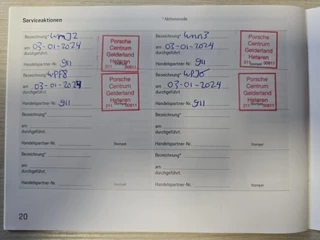 Serviceaktionen
* Aktionscode
Bezeichnung* WMJ2
am 03-01-2024
durchgeführt.
Handelspartner-Nr. 911
Porsche
Centrum
Gelderland
Heteren
Stempel
Bezeichnung* WNN3
am 03-01-2024
durchgeführt.
Handelspartner-Nr. 911
Porsche
Centrum
Gelderland
Heteren
Stempel
Bezeichnung*
am 03-01-2024
durchgeführt.
Handelspartner-Nr. 911
Porsche
Centrum
Gelderland
Heteren
Stempel
Bezeichnung*
am 03-01-2024
durchgeführt.
Handelspartner-Nr. 911
Porsche
Centrum
Gelderland
Heteren
Stempel
Bezeichnung*
am
durchgeführt.
Handelspartner-Nr.
Stempel
Bezeichnung*
am
durchgeführt.
Handelspartner-Nr.
Stempel
Bezeichnung*
am
durchgeführt.
Handelspartner-Nr.
Stempel
Bezeichnung*
am
durchgeführt.
Handelspartner-Nr.
Stempel
20